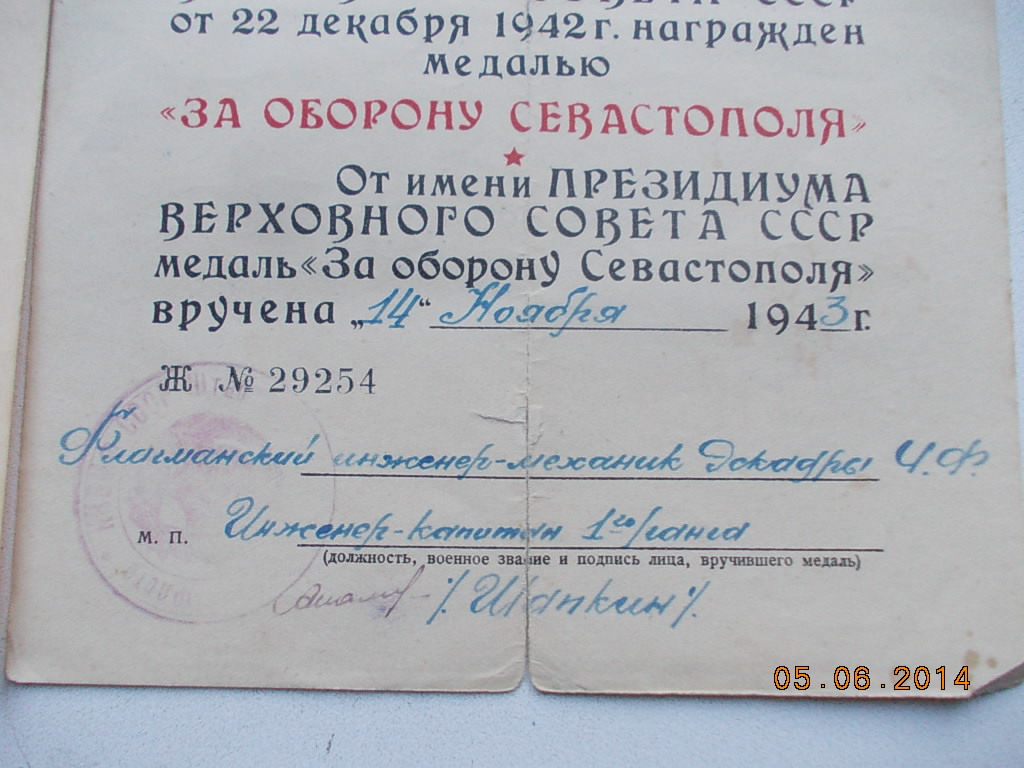 СОВЕТА СССР
от 22 декабря 1942 г. награжден
медалью
«ЗА ОБОРОНУ СЕВАСТОПОЛЯ»
От имени ПРЕЗИДИУМА
ВЕРХОВНОГО СОВЕТА СССР
медаль «За оборону Севастополя»
вручена „14“ Ноября 1943 г.
Ж № 29254
Флагманский инженер-механик Эскадры Ч.Ф.
М. П. Инженер-капитан 1го ранга
(должность, военное звание и подпись лица, вручившего медаль)
/Шапкин/.
05.06.2014